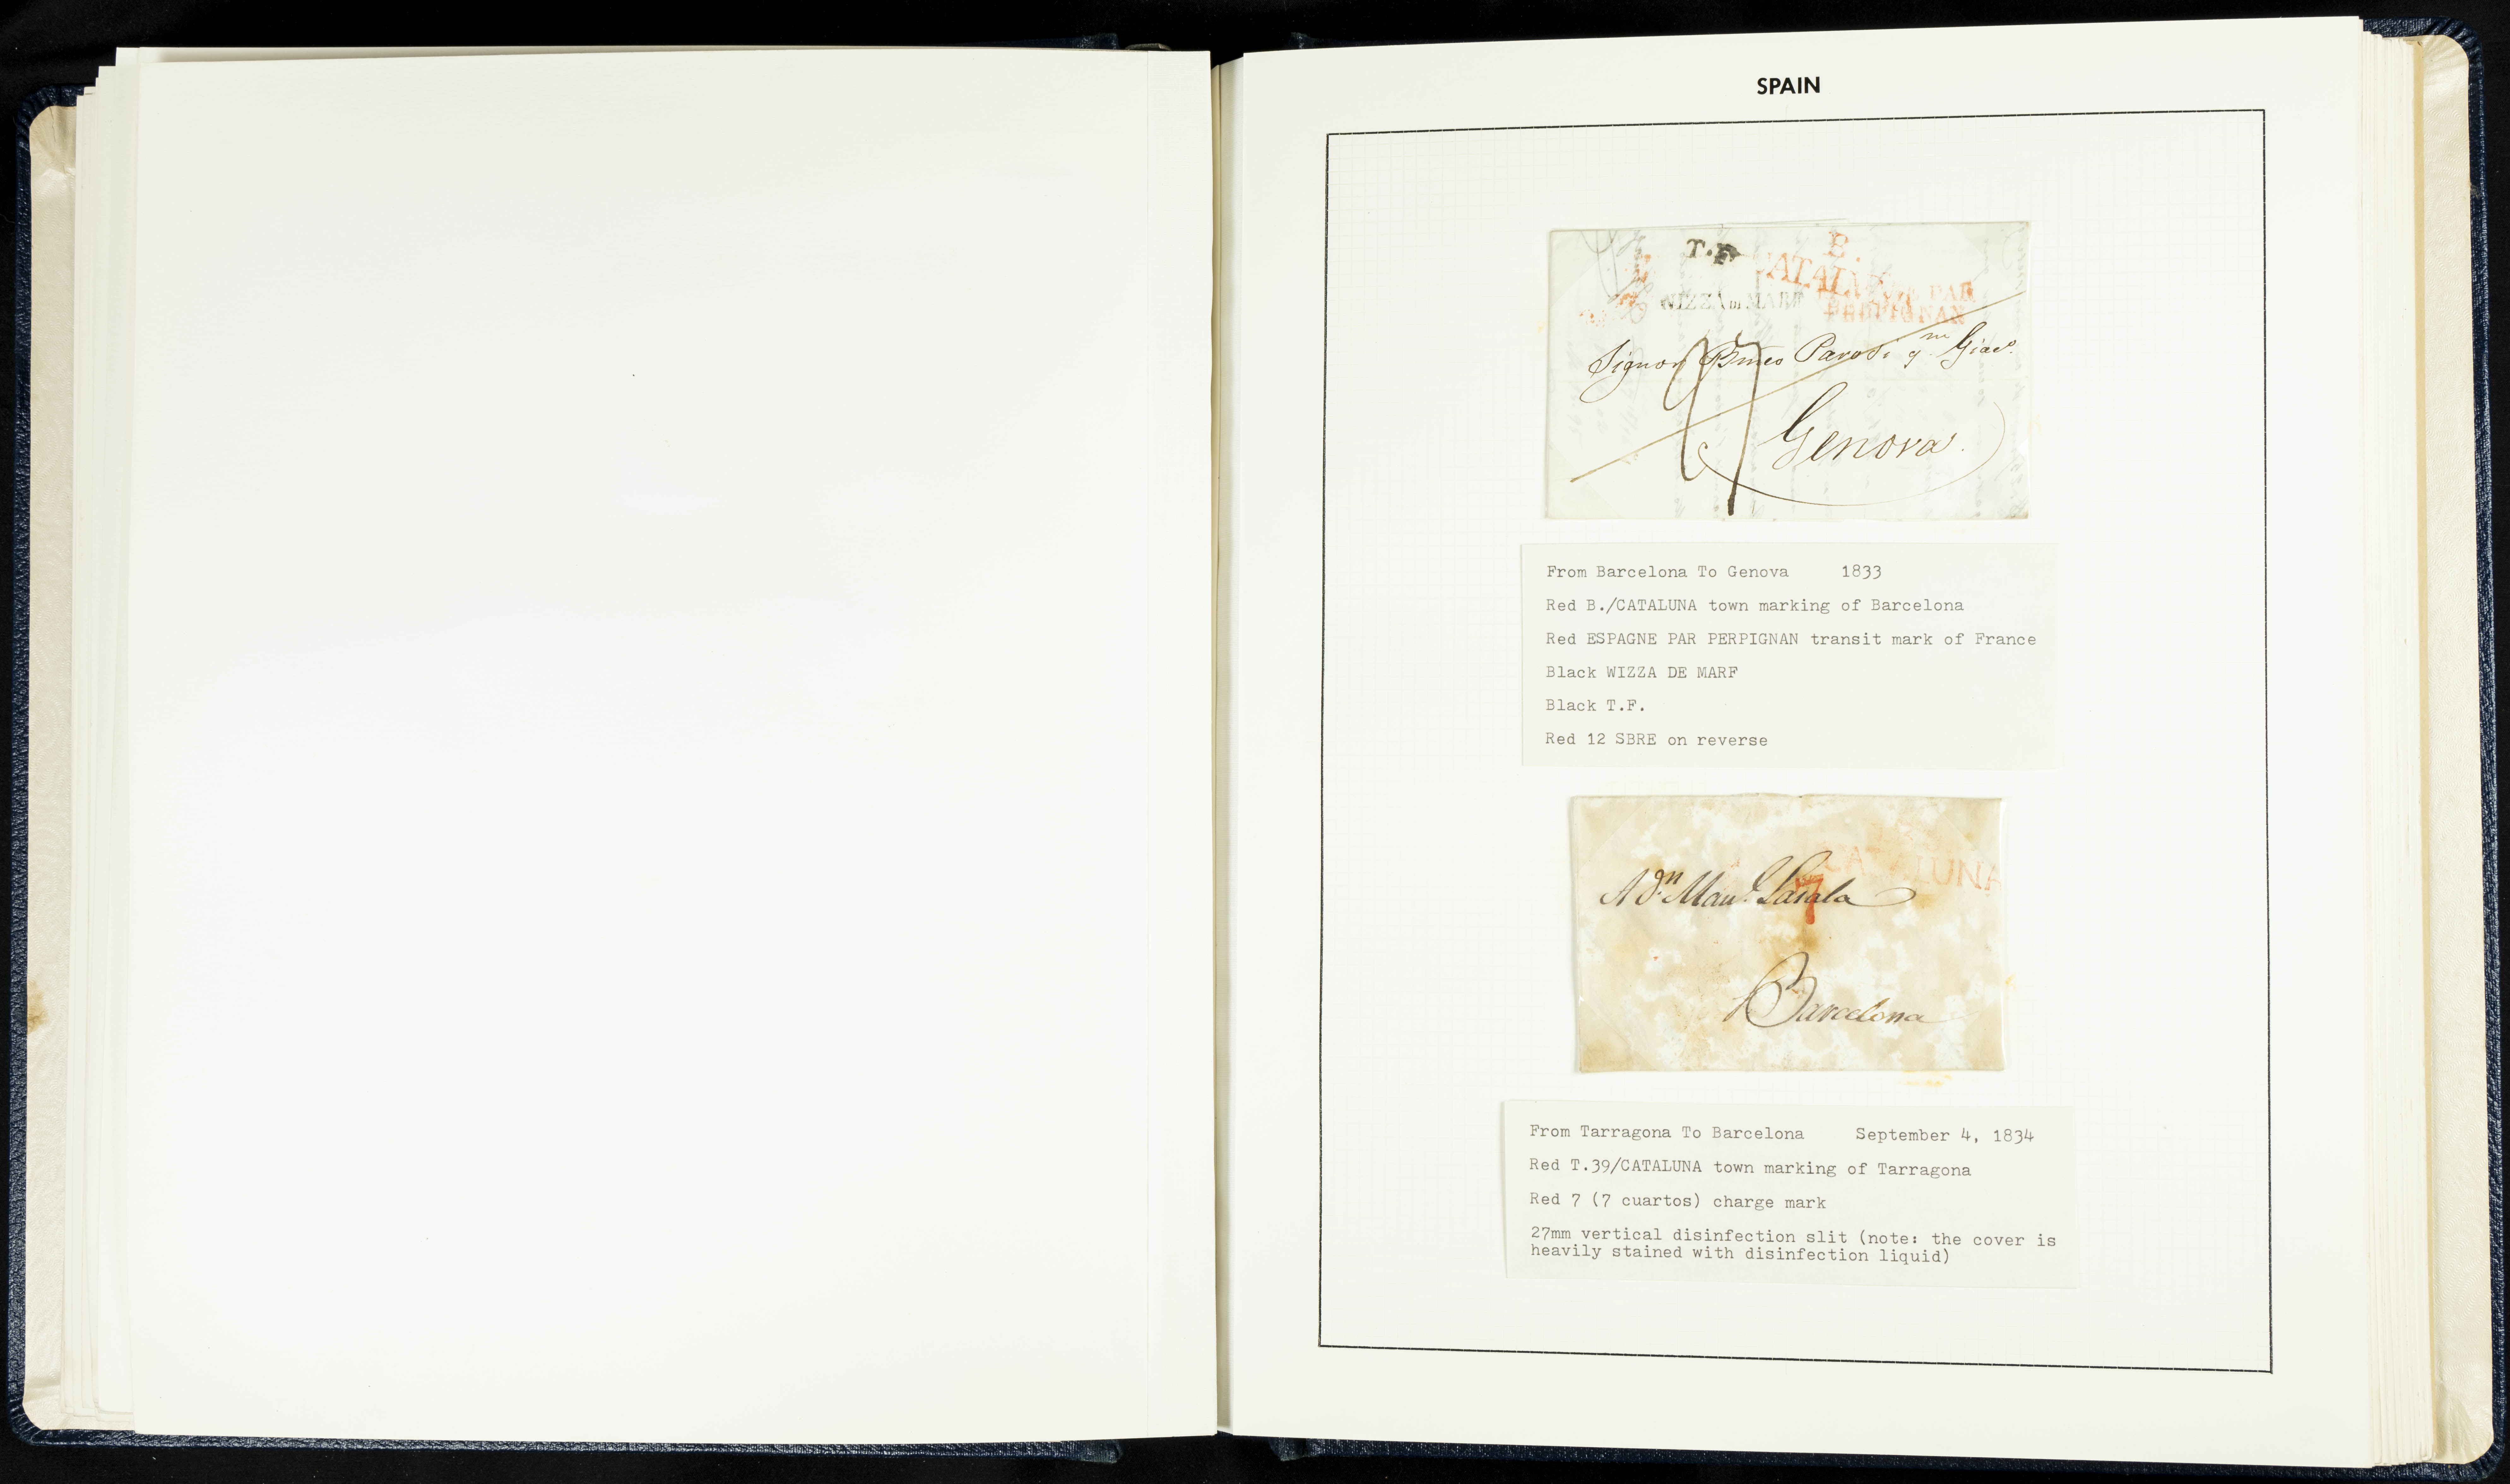 SPAIN
T.F
B.
CATALUÑA
PAR
PERPIGNAN
NIZZA MAR
Signor Parodi qm Giaco.
Genova.
From Barcelona To Genova 1833
Red B./CATALUNA town marking of Barcelona
Red ESPAGNE PAR PERPIGNAN transit mark of France
Black WIZZA DE MARF
Black T.F.
Red 12 SBRE on reverse
CATALUNA
7
A Dn Manl. Lasala
Barcelona
From Tarragona To Barcelona September 4, 1834
Red T.39/CATALUNA town marking of Tarragona
Red 7 (7 cuartos) charge mark
27mm vertical disinfection slit (note: the cover is
heavily stained with disinfection liquid)